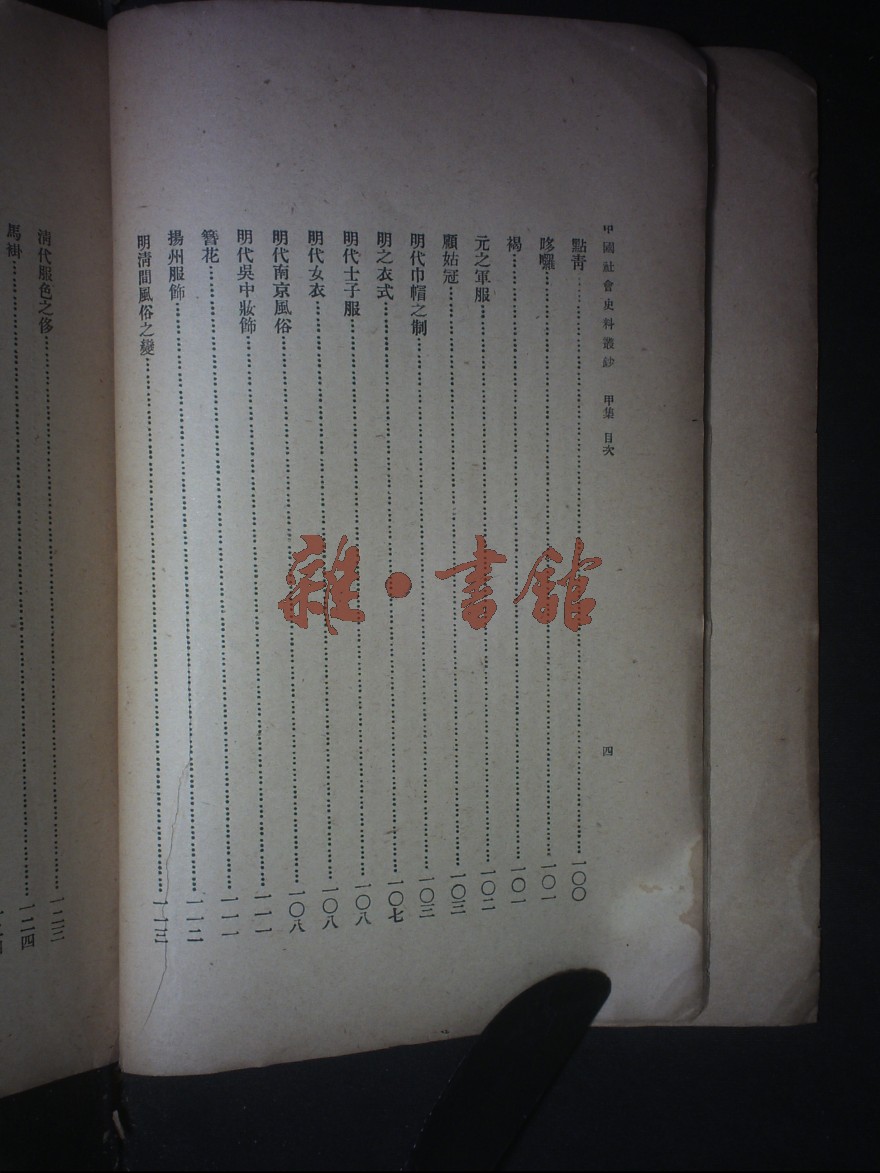 中國社會史料叢鈔 甲集 目次 四
點青……一〇〇
哆囉……一〇一
褐……一〇一
元之軍服……一〇二
顧姑冠……一〇三
明代巾帽之制……一〇三
明之衣式……一〇七
明代士子服……一〇八
明代女衣……一〇八
明代南京風俗……一〇八
明代吳中妝飾……一一一
簪花……一一一
揚州服飾……一一二
明清間風俗之變……一一三
清代服色之侈……一二三
馬褂……一二四
雜·書館